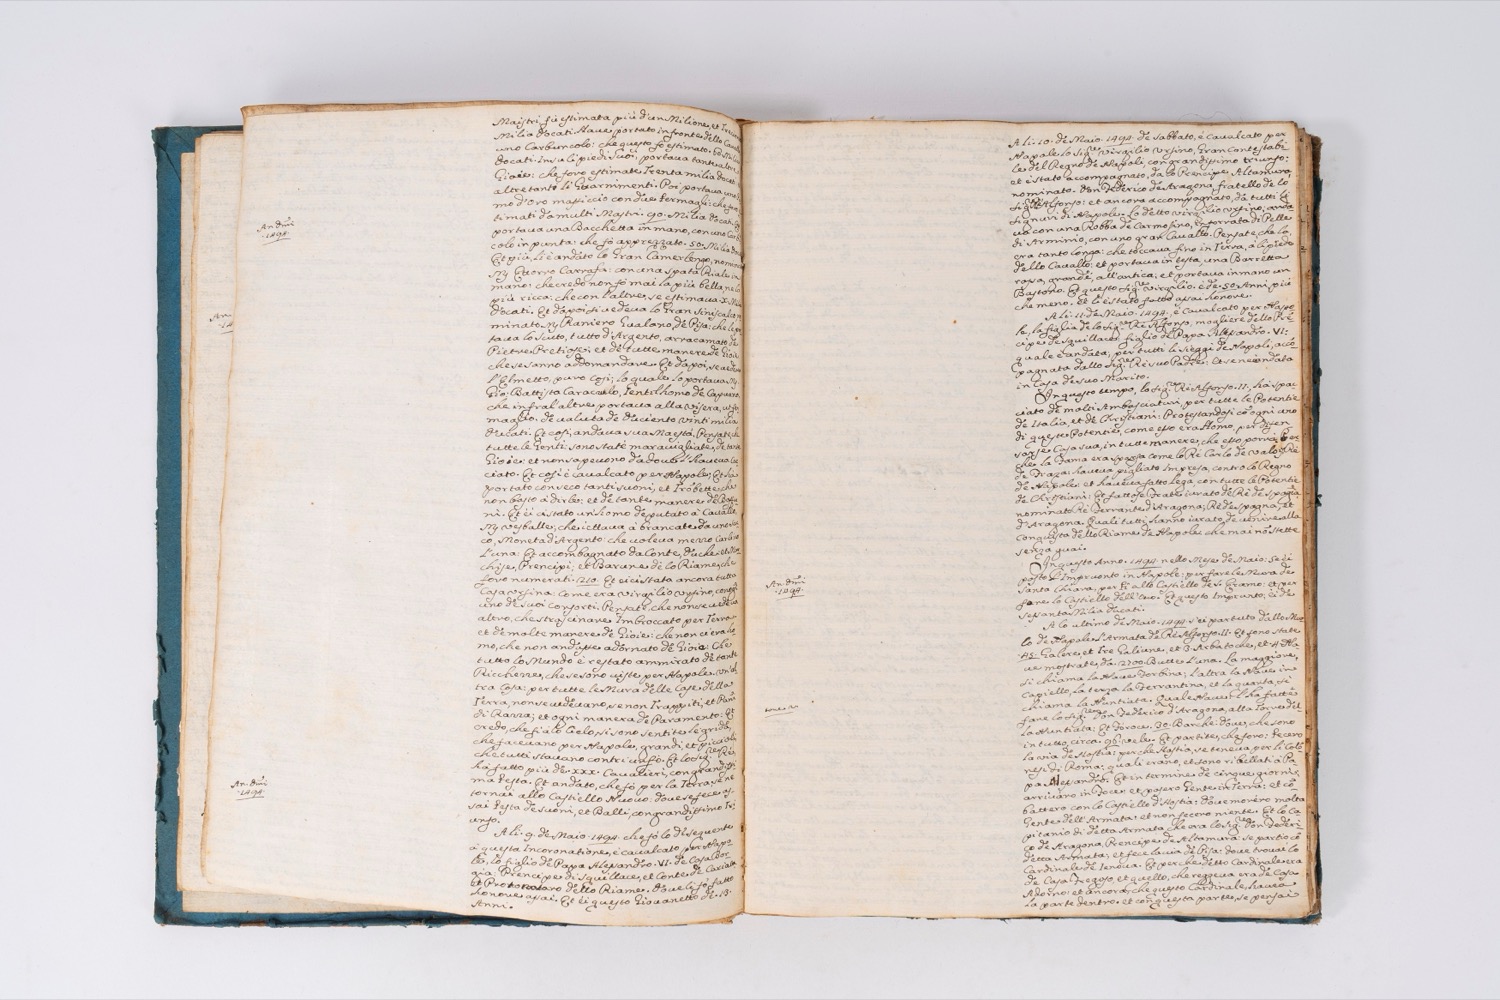 Maistri fù estimata più d'un Milione, et
Milia docati. Haue portato in fronte dello
uno Carbuncolo: che questo fò estimato
docati. Insa li piedi suoi, portava tante altre
Gioie: che foro estimate trenta milia docati
altre tanto li Guarnimenti. Poi portava una
mo d'oro massiccio con due fermagli: che
timati da multi Mastri. 90. Milia docati.
portava una Bacchetta in mano, con uno
colo in punta: che fò apprezzato. 50. Milia
Et più, li è andato lo Gran Camerlengo,
Ettorro Carrafa: con una spata Riale in
mano: che credo non fò mai la più bella, ne
più ricca: che con l'altre, se estimava X. Milia
docati. Et dapoi si vedeva lo Gran Siniscalco
minato Raniero Gualano, de Pisa: che
tava lo Scuto, tutto d'Argento, arracamato de
Pietre Pretiose: et de tutte manere de Gioie
che se sanno addomandare. Et dapoi, se
l'Elmetto, puro così; lo quale lo portava
Gio: Battista Caracciolo, Gentilhomo de Capuana
che infra l'altre portava alla Visera,
maglio: de valuta de duciento vinti milia
ducati. Et così, andava sua Maestà. Pensate,
tutte le Genti: sono state maravigliate, de tante
Gioie: et non sapevono da dove l'haveva
ciato. Et così è cavalcato per Napole: Et
portato con seco tanti suoni, et Trobette: che
non basto a dirlo: et de tante manere de
ni. Et ci è stato un homo deputato à Cavallo
che iettava à brancate da
co, Moneta d'Argento: che voleva mezzo Carlino
l'una: Et accompagnato da Conte, Duche, et
chise, Prencipi, et Barune de lo Riame, che
foro numerati. 210. Et ci è stata ancora tutta
Casa Ursina: come era Virgilio Ursino, con
uno de suoi consorti. Pensate, che non se vedeva
altro, che strascinare Imbroccato per Terra
et de molte manere de Gioie: che non ci era
mo, che non andasse adornato de Gioie: Che
tutto lo Mundo è restato ammirato de tante
Ricchezze, che se sono viste per Napole.
tra Cosa: per tutte le Mura delle Case della
Terra, non se vedevano, se non Trappiti, et Panni
di Razza; et ogni manera de Paramento: Et
credo, che fi a lo Cielo, si sono sentite le grida,
che facevano per Napole, grandi, et piccoli
che tutti stavano contri un fò. Et lo Sig.re Rè
ha fatto più de XXX. Cavalieri, con
ma Festa. Et andato, che fò per la Terra; se ne
tornai allo Castiello Nuovo: dove se fece as-
sai Festa de suoni, et Balli, con grandissimo
unfo.
A li. 9. de Maio. 1494. che fò lo dì sequente
a questa Incoronatione, è cavalcato per Napo-
le, lo figlio de Papa Alesandro. VI. de Casa Bor-
gia: Prencipe di Squillace, et Conte de Cariati
et Protonotaro dello Riame. Dove li fò fatto
honore assai. Et è questo Giovanetto de. 13.
Anni.
An. dñi
1494.
An. dñi
1494.
A li. 10. de Maio. 1494. de Sabbato, è Cavalcato per
Napole lo Sig.re Virgilio Ursino, Gran Contestabi
le del Regno de Napoli, con grandissimo triunfo:
et è stato accompagnato, da lo Prencipe Altamura
nominato. Don Federico de Aragona fratello de lo
Sig.re Rè Alfonso: et ancora accompagnato, da tutti li
Signuri di Napole. Lo detto Virgilio Ursino, anda
va con una Robba de Carmosino, forrata di Pelle
di Arminio, con uno gran Cavallo. Pensate che lo
era tanto longa: che toccava fino in Terra, a li piedi
dello Cavallo: et portava in testa, una Barretta
rossa, grande, all'antica; et portava in mano un
Bastone. Et questo Sig.re Virgilio, è de. 50. Anni, più
che meno. et li è stato fatto assai honore.
A li. 11. de Maio. 1494. è Cavalcato per Napo-
le, la figlia de lo Sig.re Rè Alfonso, magliere dello Prē-
cipe de Squillace, figlio de Papa Alesandro. VI.
quale è andata, per tutti li Seggi de Napoli, accō-
pagnata dallo Sig.re Rè suo Padre. Et se ne è andata
in Casa de suo Marito.
In questo tempo, lo Sig.re Rè Alfonso. II. hà spac
ciato de molti Ambasciaturi, per tutte le Potentie
de Italia, et de Christiani: Protestandosi cō ogni uno
di queste Potentie, come esso era Homo, per difen
sarse Casa sua, in tutte manere, che esso porrà. Per
che la Fama era spasa come lo Rè Carlo de Valois, Rè
de Franza: haveva pigliato Impresa, contro lo Regno
de Napole: et haveva fatto Lega con tutte le Potentie
de Christiani: Et fattose Frate iurato de Rè de Spagna
nominato Rè Ferrante d'Aragona, Rè de Spagna, et
d'Aragona. Quali tutti hanno iurato de venire alla
conquesta dello Riame de Napole; che mai nō stette
senza guai.
In questo Anno. 1494. nello Mese de Maio: Se ci
posto l'Impronto in Napole: per fare le Mura de
Santa Chiara, per fi allo Castiello de S. Eramo: et per
fare lo Castiello dell'Ovo. Et questo Impronto, è de
sessanta Milia docati.
A lo ultimo de Maio. 1494. s'ei partuto dallo Mo-
lo de Napole, l'Armata de Rè Alfonso. II. Et sono state
45. Galere, et tre Galiune, et 3. Arbatoche, et 4. Na-
ve mostrate, da. 2700. Butte l'una. La maggiore,
si chiama la Nave Forbina; l'altra la Nave in
Capiello, la terza la Ferrantina, et la quarta, si
chiama la Nuntiata. Quale Nave, l'hà fatte
fare lo Sig.re Don Federico d'Aragona, alla Torre del
la Nuntiata: Et foroce. 30. Barche: dove, che sono
in tutto, circa. 96. vele. Et partite, che foro: fecero
la via de Hostia: perche Hostia, se teneva per li Colo
nesi di Roma: quali erano, et sono ribellati a Pa
pa Alesandro. Et in termine de cinque giorni,
arrivaro in Foce: et posero Gente in Terra: et cō
battero con lo Castiello d'Hostia: dove morèro molta
Gente dell'Armata: et non fecero niente. Et lo Ca
pitanio di detta Armata che era lo Sig.re Don Federi
co de Aragona, Prencipe de Altamura: se partio cō
detta Armata; et fece la via de Pisa: dove trovai lo
Cardinale de Genova. Et perche detto Cardinale era
de Casa Fregoso, et quello, che reggeva era de Casa
Adorno: et ancora; che questo Cardinale, haveva
la parte dentro. et con questa parte, se pensai
An. dñi
1494.